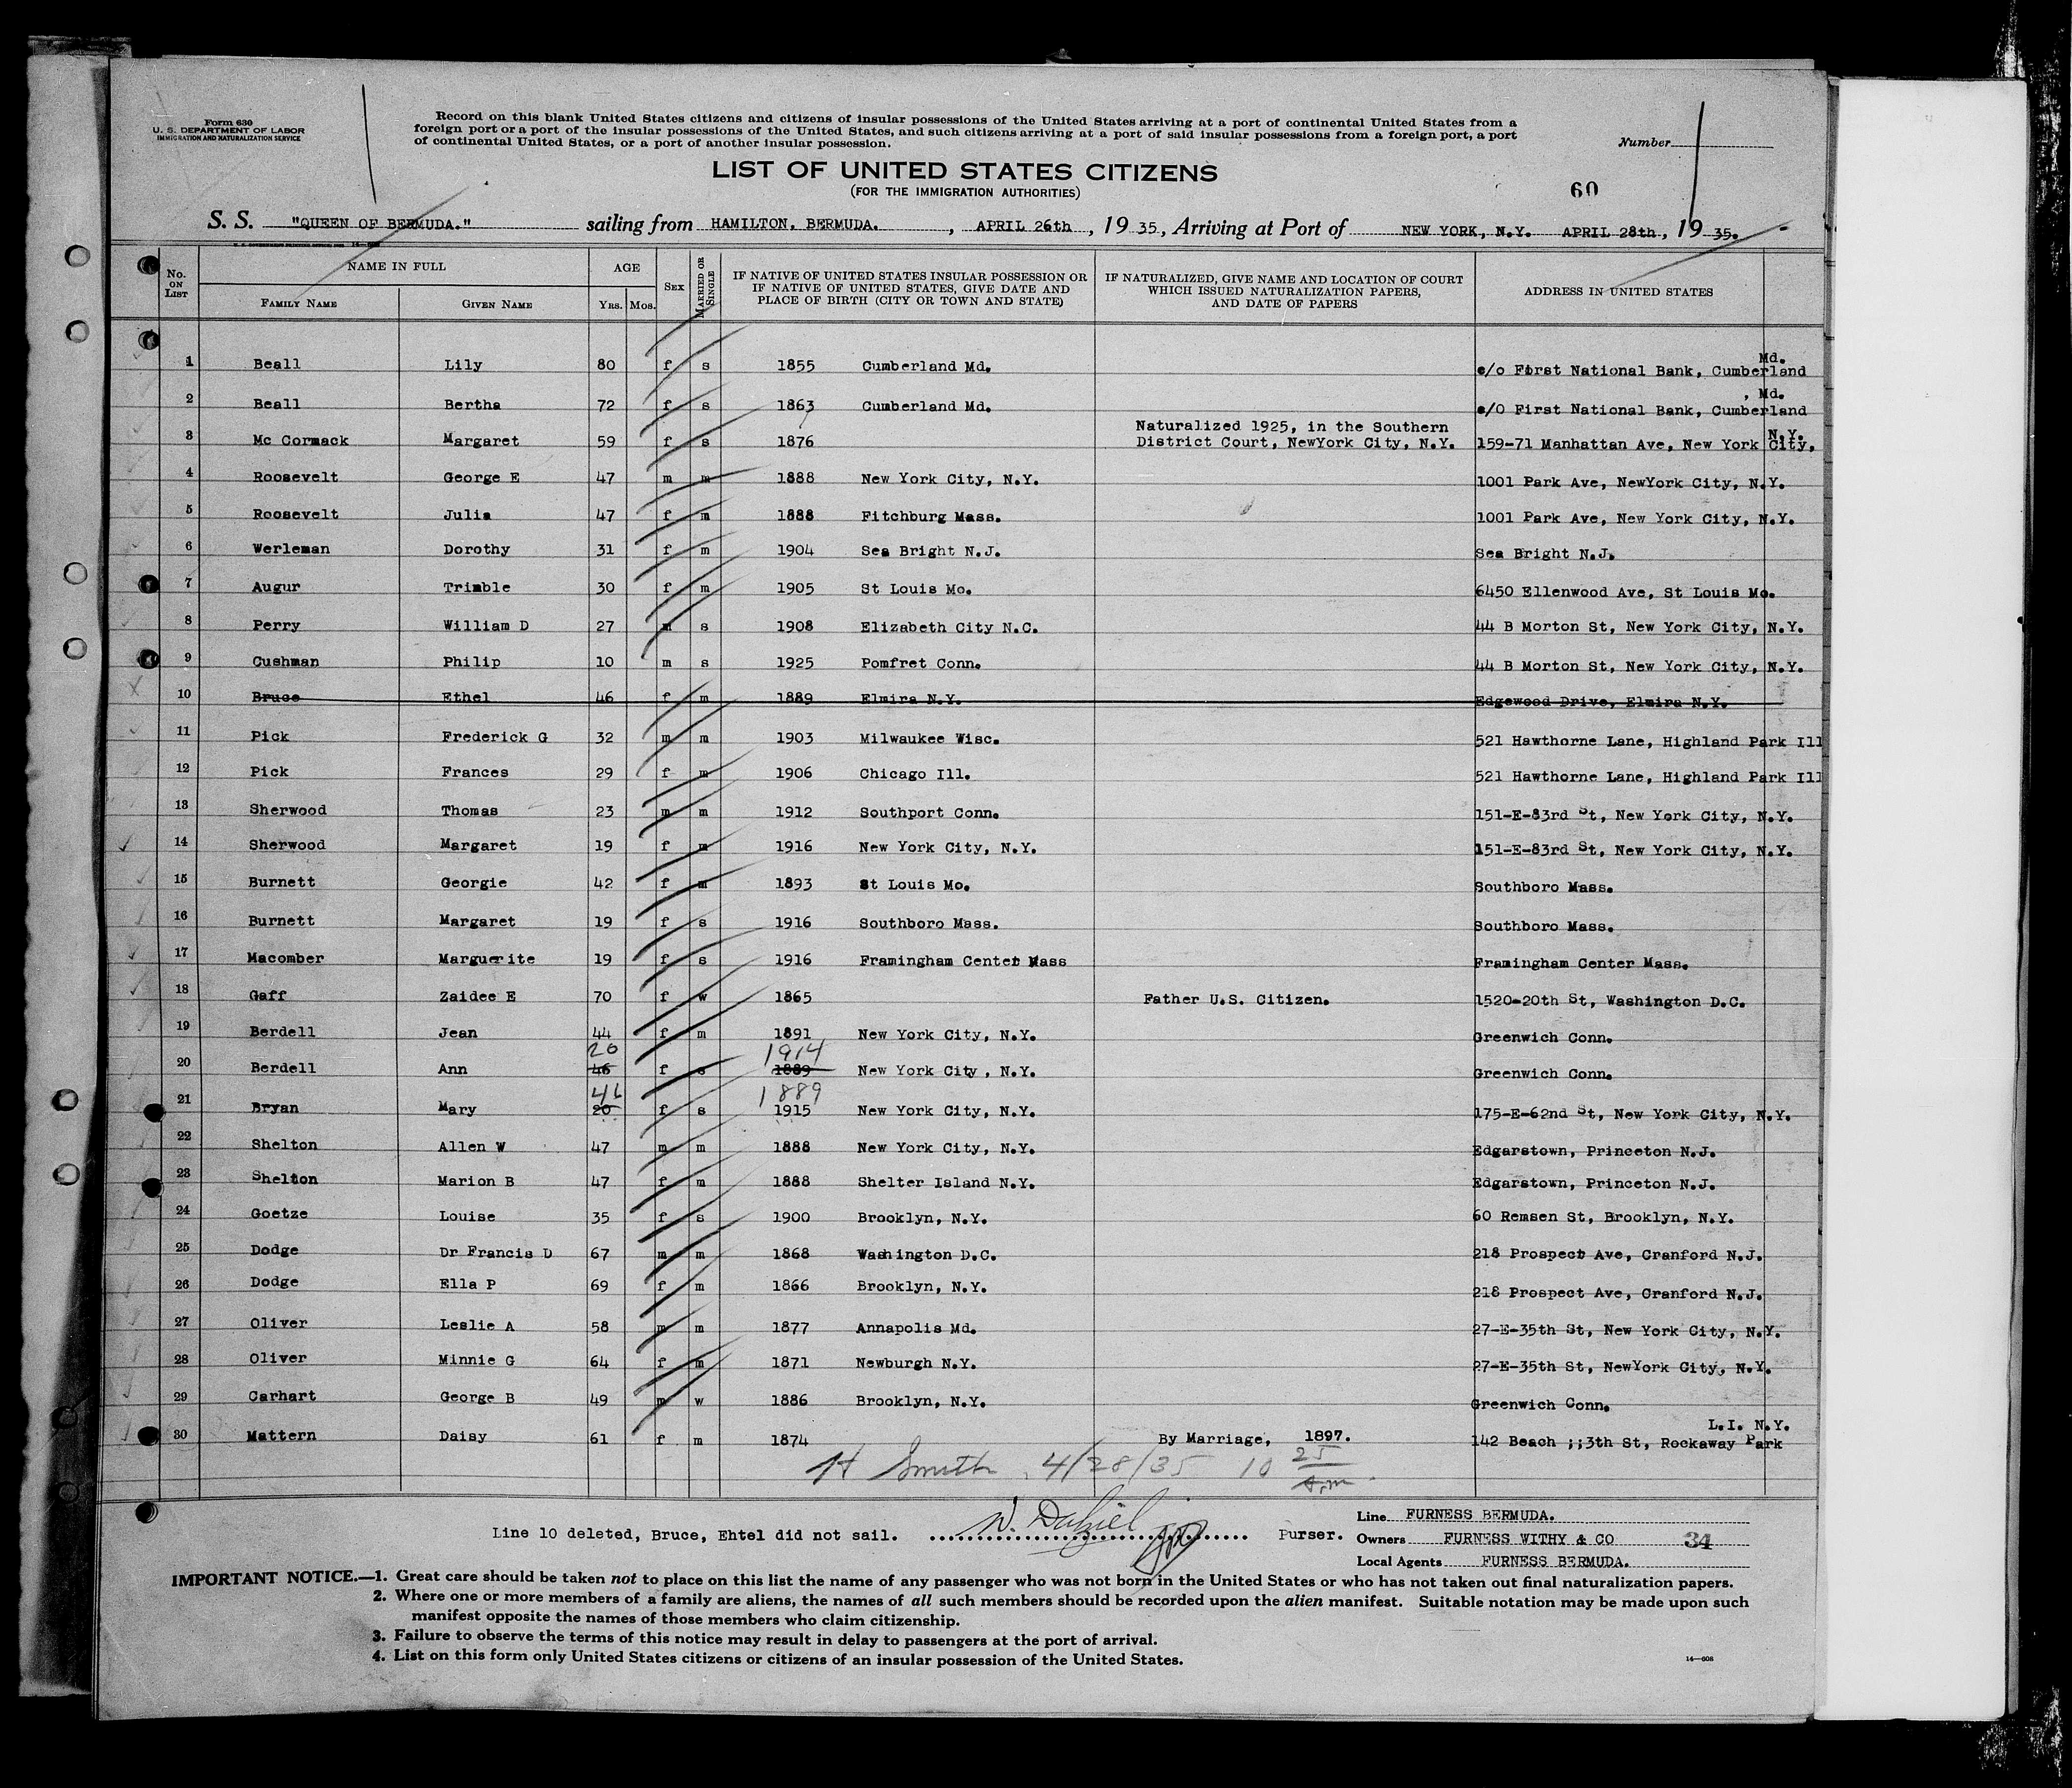 Form 630
U. S. DEPARTMENT OF LABOR
IMMIGRATION AND NATURALIZATION SERVICE
Record on this blank United States citizens and citizens of insular possessions of the United States arriving at a port of continental United States from a
foreign port or a port of the insular possessions of the United States, and such citizens arriving at a port of said insular possessions from a foreign port, a port
of continental United States, or a port of another insular possession.
Number
LIST OF UNITED STATES CITIZENS
(FOR THE IMMIGRATION AUTHORITIES)
60
S. S. "QUEEN OF BERMUDA." sailing from HAMILTON, BERMUDA. , APRIL 26th , 19 35, Arriving at Port of NEW YORK, N.Y. APRIL 28th , 19 35.
No. ON LIST NAME IN FULL FAMILY NAME GIVEN NAME AGE YRS. MOS. SEX MARRIED OR SINGLE IF NATIVE OF UNITED STATES INSULAR POSSESSION OR IF NATIVE OF UNITED STATES, GIVE DATE AND PLACE OF BIRTH (CITY OR TOWN AND STATE) IF NATURALIZED, GIVE NAME AND LOCATION OF COURT WHICH ISSUED NATURALIZATION PAPERS, AND DATE OF PAPERS ADDRESS IN UNITED STATES
1 Beall Lily 80 f s 1855 Cumberland Md. c/o First National Bank, Cumberland Md.
2 Beall Bertha 72 f s 1863 Cumberland Md. c/o First National Bank, Cumberland , Md.
3 Mc Cormack Margaret 59 f s 1876 Naturalized 1925, in the Southern District Court, NewYork City, N.Y. 159-71 Manhattan Ave, New York City, N.Y.
4 Roosevelt George E 47 m m 1888 New York City, N.Y. 1001 Park Ave, NewYork City, N.Y.
5 Roosevelt Julia 47 f m 1888 Fitchburg Mass. 1001 Park Ave, New York City, N.Y.
6 Werleman Dorothy 31 f m 1904 Sea Bright N.J. Sea Bright N.J.
7 Augur Trimble 30 f m 1905 St Louis Mo. 6450 Ellenwood Ave, St Louis Mo.
8 Perry William D 27 m s 1908 Elizabeth City N.C. 44 B Morton St, New York City, N.Y.
9 Cushman Philip 10 m s 1925 Pomfret Conn. 44 B Morton St, New York City, N.Y.
10 Bruce Ethel 46 f m 1889 Elmira N.Y. Edgewood Drive, Elmira N.Y.
11 Pick Frederick G 32 m m 1903 Milwaukee Wisc. 521 Hawthorne Lane, Highland Park Ill
12 Pick Frances 29 f m 1906 Chicago Ill. 521 Hawthorne Lane, Highland Park Ill
13 Sherwood Thomas 23 m m 1912 Southport Conn. 151-E-83rd St, New York City, N.Y.
14 Sherwood Margaret 19 f m 1916 New York City, N.Y. 151-E-83rd St, New York City, N.Y.
15 Burnett Georgie 42 f m 1893 St Louis Mo. Southboro Mass.
16 Burnett Margaret 19 f s 1916 Southboro Mass. Southboro Mass.
17 Macomber Marguerite 19 f s 1916 Framingham Center Mass Framingham Center Mass.
18 Gaff Zaidee E 70 f w 1865 Father U.S. Citizen. 1520-20th St, Washington D.C.
19 Berdell Jean 44 f m 1891 New York City, N.Y. Greenwich Conn.
20 1914
20 Berdell Ann 46 f s 1889 New York City, N.Y. Greenwich Conn.
46 1889
21 Bryan Mary 20 f s 1915 New York City, N.Y. 175-E-62nd St, New York City, N.Y.
22 Shelton Allen W 47 m m 1888 New York City, N.Y. Edgarstown, Princeton N.J.
23 Shelton Marion B 47 f m 1888 Shelter Island N.Y. Edgarstown, Princeton N.J.
24 Goetze Louise 35 f s 1900 Brooklyn, N.Y. 60 Remsen St, Brooklyn, N.Y.
25 Dodge Dr Francis D 67 m m 1868 Washington D.C. 218 Prospect Ave, Cranford N.J.
26 Dodge Ella P 69 f m 1866 Brooklyn, N.Y. 218 Prospect Ave, Cranford N.J.
27 Oliver Leslie A 58 m m 1877 Annapolis Md. 27-E-35th St, New York City, N.Y.
28 Oliver Minnie G 64 f m 1871 Newburgh N.Y. 27-E-35th St, NewYork City, N.Y.
29 Carhart George B 49 m w 1886 Brooklyn, N.Y. Greenwich Conn.
30 Mattern Daisy 61 f m 1874 By Marriage, 1897. 142 Beach ;;3th St, Rockaway Park L.I. N.Y.
H Smith 4/28/35 10 25 A.m.
Line 10 deleted, Bruce, Ehtel did not sail. Purser.
Line FURNESS BERMUDA.
Owners FURNESS WITHY & CO 34
Local Agents FURNESS BERMUDA.
IMPORTANT NOTICE.—1. Great care should be taken not to place on this list the name of any passenger who was not born in the United States or who has not taken out final naturalization papers.
2. Where one or more members of a family are aliens, the names of all such members should be recorded upon the alien manifest. Suitable notation may be made upon such
manifest opposite the names of those members who claim citizenship.
3. Failure to observe the terms of this notice may result in delay to passengers at the port of arrival.
4. List on this form only United States citizens or citizens of an insular possession of the United States.
14—608